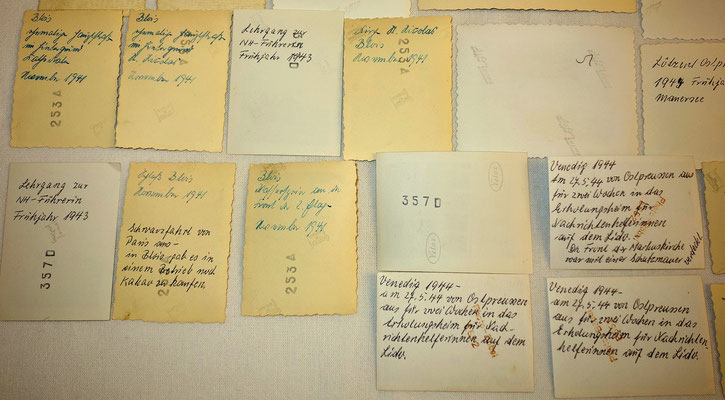 Blois
ehemalige
im Hintergrund
Kathedrale
November 1941
253A
Blois
ehemalige
im Hintergrund
St. Nicolas
November 1941
Lehrgang zur
NH-Führerin
Frühjahr 1943
St. Nicolas
Blois
November 1941
252A
Lötzen / Ostpr
1943 Frühjahr
Mauersee
Lehrgang zur
NH-Führerin
Frühjahr 1943
357D
Schloß Blois
November 1941
Schwarzfahrt von
Paris aus -
in Blois gab es in
einem Betrieb noch
Kakao zu kaufen.
Blois
November 1941
253A
357D
Velox
Velox
Venedig 1944
Am 27.5.44 von Ostpreussen aus
für zwei Wochen in das
Erholungsheim für
Nachrichtenhelferinnen
auf dem Lido.
Die Front der Markuskirche
war mit einer Schutzmauer
Venedig 1944 -
am 27.5.44 von Ostpreussen
aus für zwei Wochen in das
Erholungsheim für Nach-
richtenhelferinnen auf dem
Lido.
Venedig 1944 -
am 27.5.44 von Ostpreussen
aus für zwei Wochen in das
Erholungsheim für Nachrichten-
helferinnen auf dem Lido.